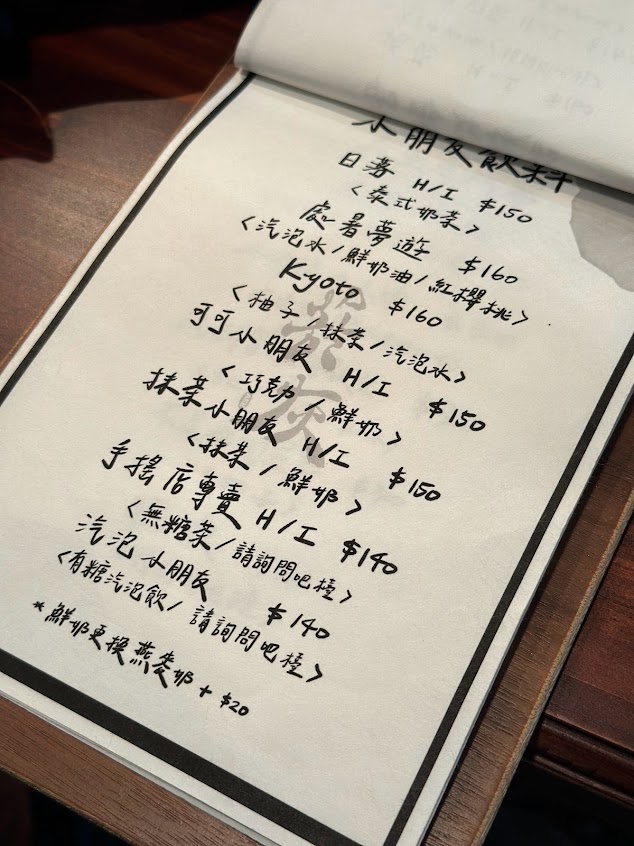 小朋友飲料
日暮 H/I $150
<泰式奶茶>
處暑夢遊 $160
<汽泡水/鮮奶油/紅櫻桃>
Kyoto $160
<柚子/抹茶/汽泡水>
可可小朋友 H/I $150
<巧克力/鮮奶>
抹茶小朋友 H/I $150
<抹茶/鮮奶>
手搖店專賣 H/I $140
<無糖茶/請詢問吧檯>
汽泡小朋友 $140
<有糖汽泡飲/請詢問吧檯>
*鮮奶更換燕麥奶+$20